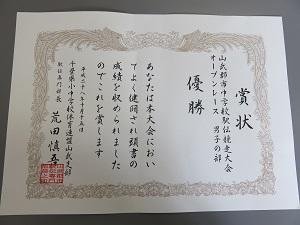 賞状
山武郡市中学校駅伝競走大会
オープンレース 男子の部
優勝
あなたは本大会におい
てよく健闘され頭書の
成績を収められました
のでこれを賞します
平成二八年十月十五日
千葉県小中学校体育連盟山武支部
駅伝専門部長 荒田慎吾